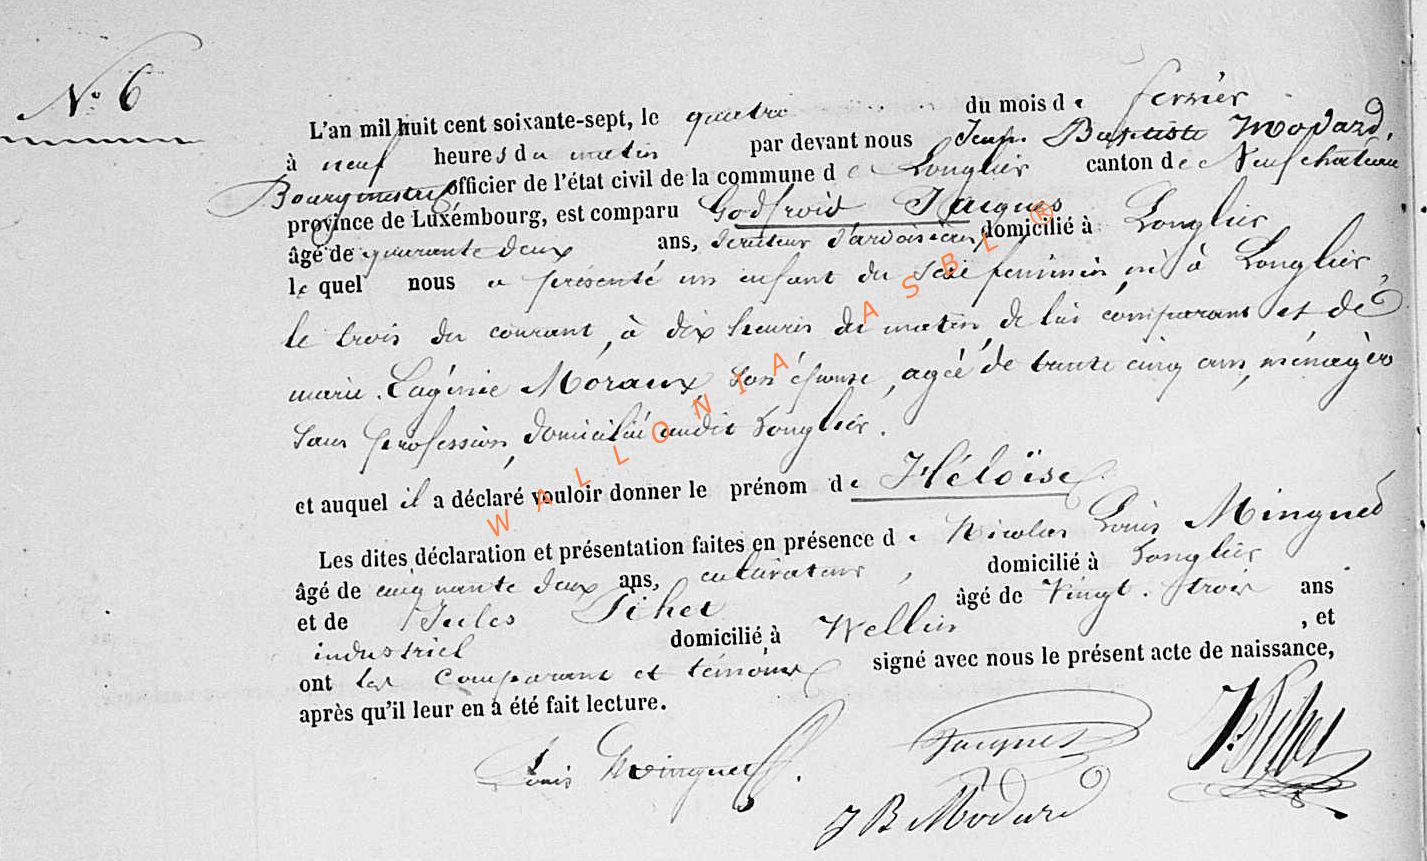 N° 6
L'an mil huit cent soixante-sept, le quatre du mois de fevrier
à neuf heures du matin par devant nous Jean Baptiste Modard,
Bourgmestre officier de l'état civil de la commune de Longlier canton de Neufchateau
province de Luxémbourg, est comparu Godfroid Jacques
âgé de quarante deux ans, domicilié à Longlier
le quel nous a présenté un enfant du sexe feminin, né à Longlier,
le trois du courant, à dix heures du matin, de lui comparant et de
marie Eugénie Moraux, son épouse, agée de trente cinq ans, ménagère
sans profession, domiciliée audit Longlier.
et auquel il a déclaré vouloir donner le prénom de Héloïse
Les dites déclaration et présentation faites en présence de Nicolas Louis Minguet
âgé de cinquante deux ans, cultivateur, domicilié à Longlier
et de Jules Pihet âgé de vingt-trois ans
industriel domicilié à Wellin, et
ont les comparant et témoins signé avec nous le présent acte de naissance,
après qu'il leur en a été fait lecture.
Louis Minguet
Jacques
J. Pihet
J B Modard
WALLONIA ASBL ®